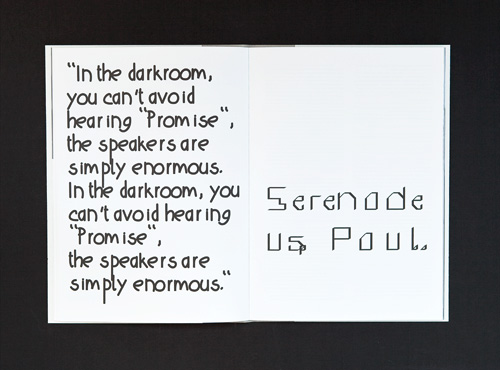 "In the darkroom,
you can't avoid
hearing "Promise",
the speakers are
simply enormous.
In the darkroom, you
can't avoid hearing
"Promise",
the speakers are
simply enormous."
Serenade
us, Paul.